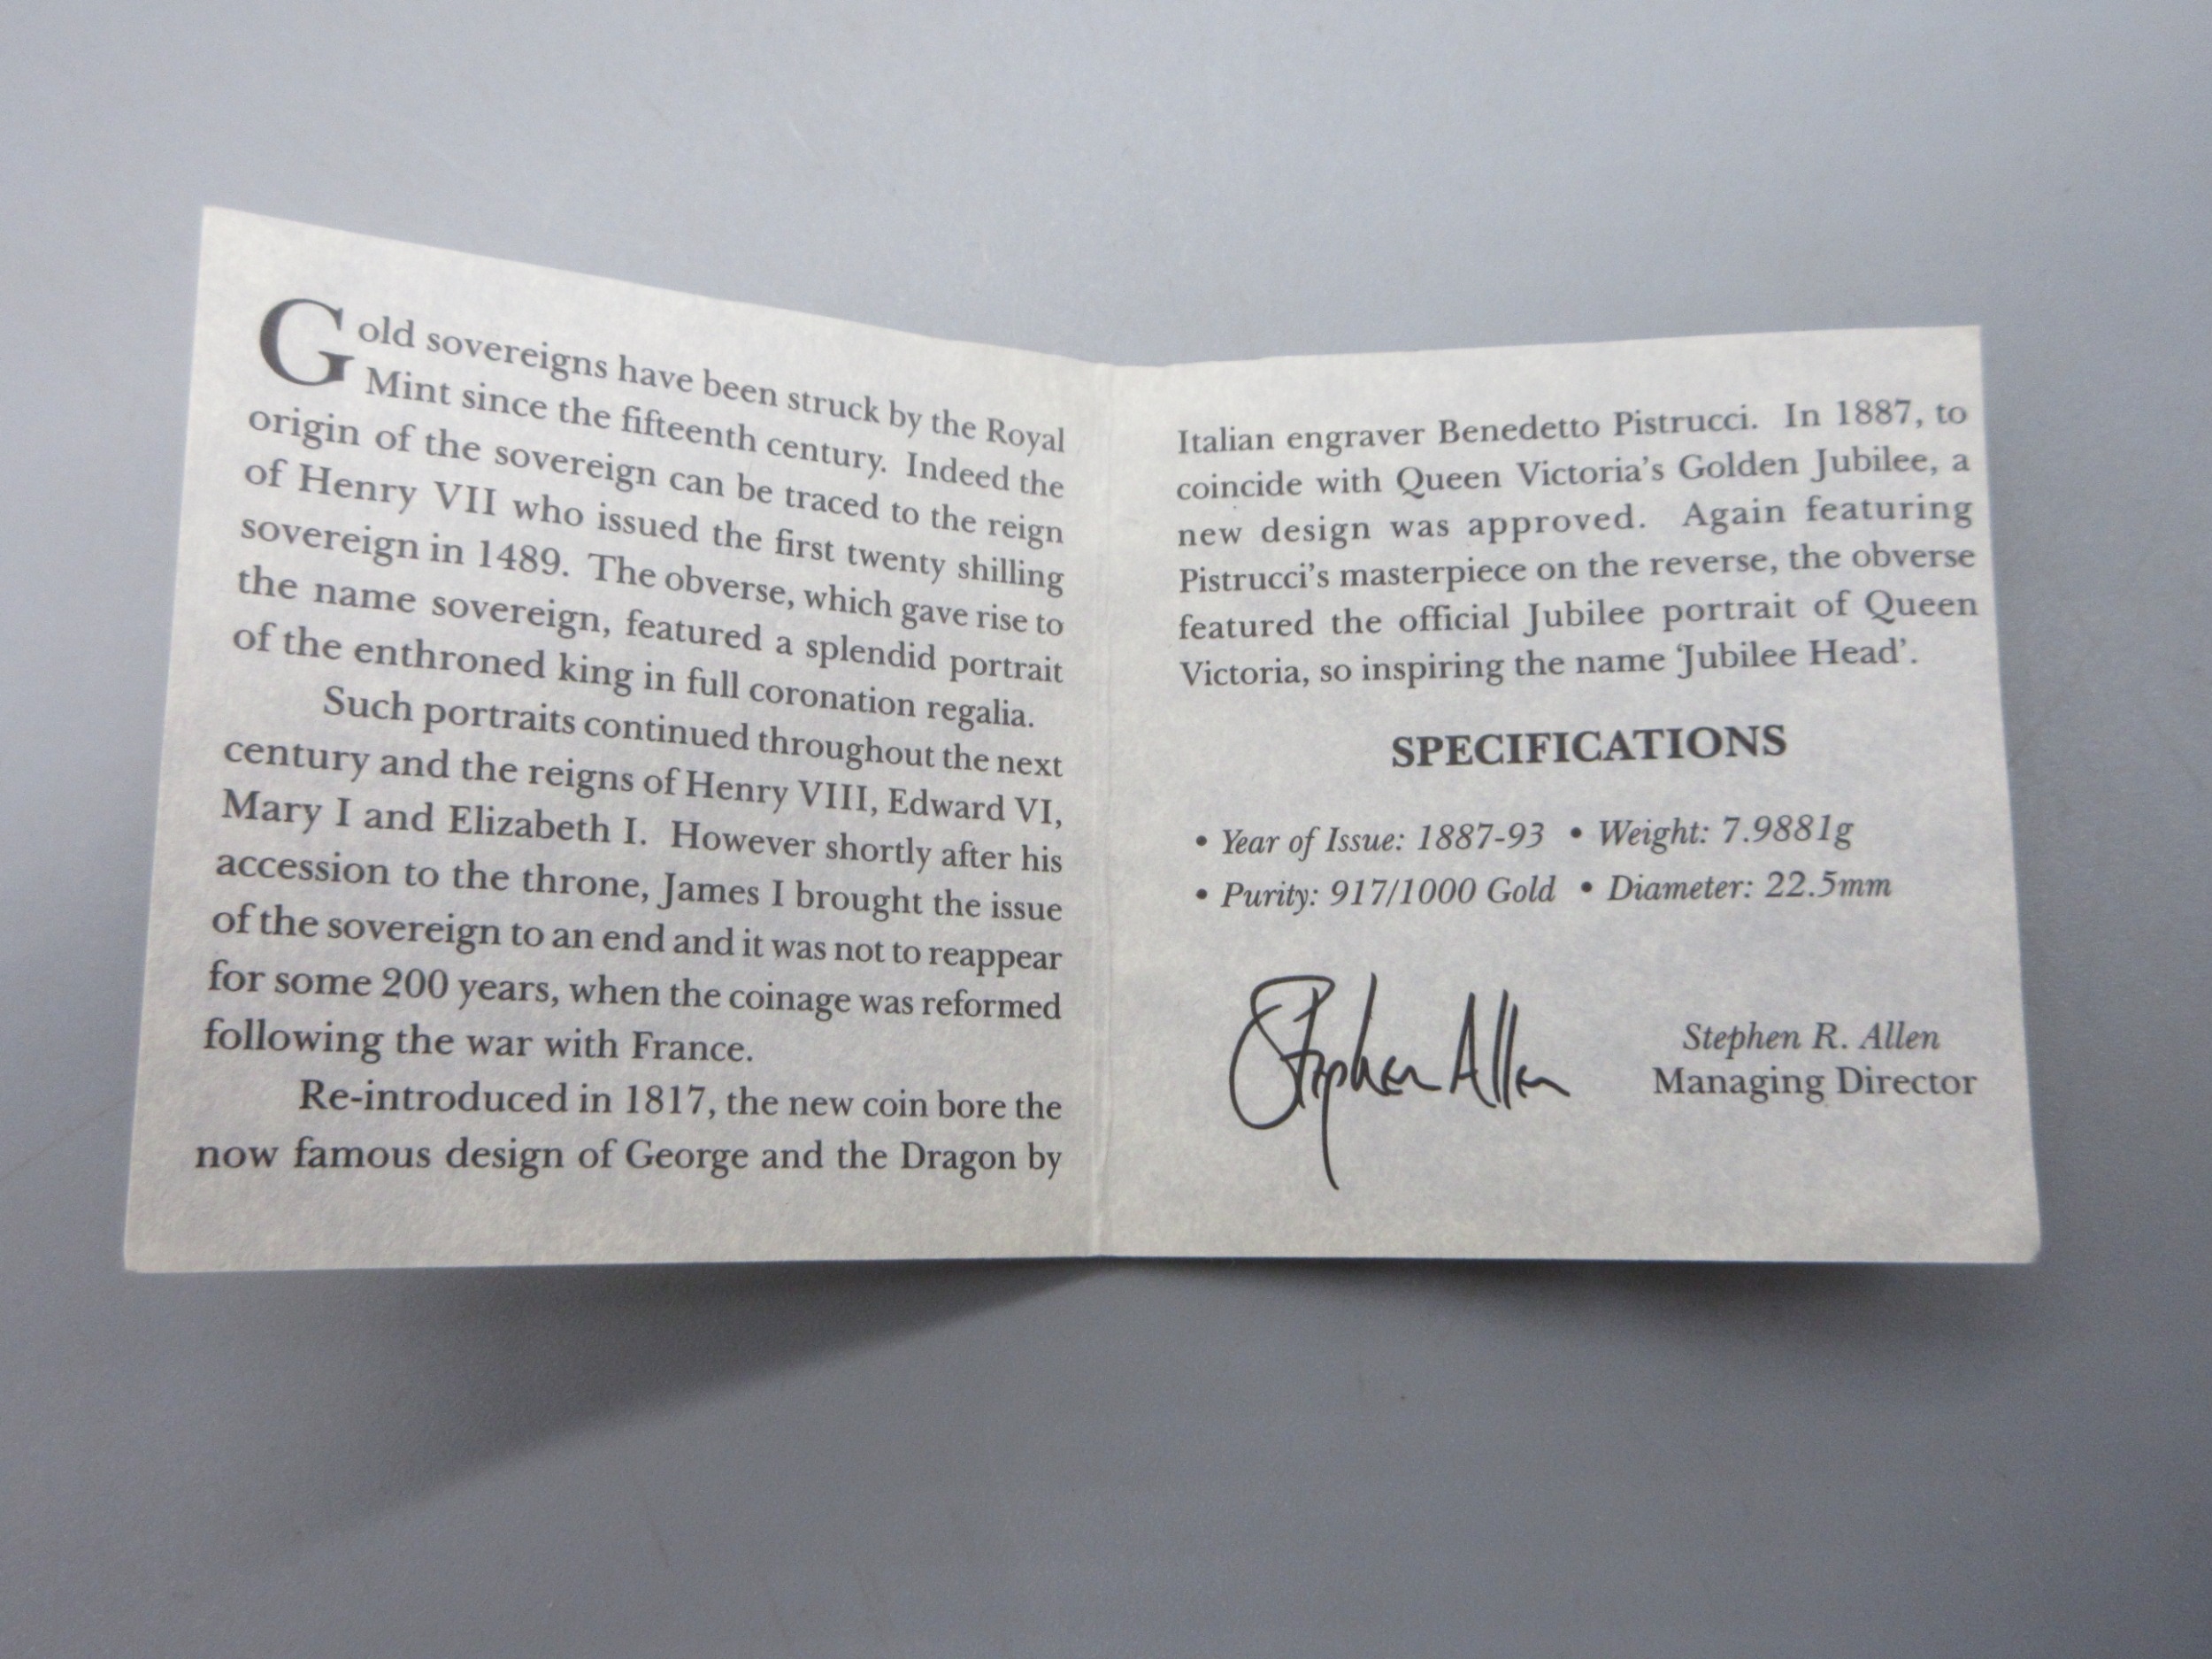 Gold sovereigns have been struck by the Royal
Mint since the fifteenth century. Indeed the
origin of the sovereign can be traced to the reign
of Henry VII who issued the first twenty shilling
sovereign in 1489. The obverse, which gave rise to
the name sovereign, featured a splendid portrait
of the enthroned king in full coronation regalia.
Such portraits continued throughout the next
century and the reigns of Henry VIII, Edward VI,
Mary I and Elizabeth I. However shortly after his
accession to the throne, James I brought the issue
of the sovereign to an end and it was not to reappear
for some 200 years, when the coinage was reformed
following the war with France.
Re-introduced in 1817, the new coin bore the
now famous design of George and the Dragon by
Italian engraver Benedetto Pistrucci. In 1887, to
coincide with Queen Victoria's Golden Jubilee, a
new design was approved. Again featuring
Pistrucci's masterpiece on the reverse, the obverse
featured the official Jubilee portrait of Queen
Victoria, so inspiring the name 'Jubilee Head'.
SPECIFICATIONS
• Year of Issue: 1887-93 • Weight: 7.9881g
• Purity: 917/1000 Gold • Diameter: 22.5mm
Stephen Allen
Stephen R. Allen
Managing Director